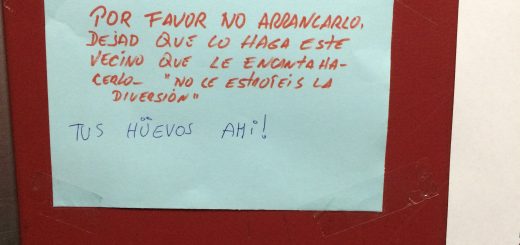 POR FAVOR NO ARRANCARLO,
DEJAD QUE LO HAGA ESTE
VECINO QUE LE ENCANTA HA-
CERLO- "NO LE ESTROPEIS LA
DIVERSIÓN"
TUS HÜEVOS AHI!